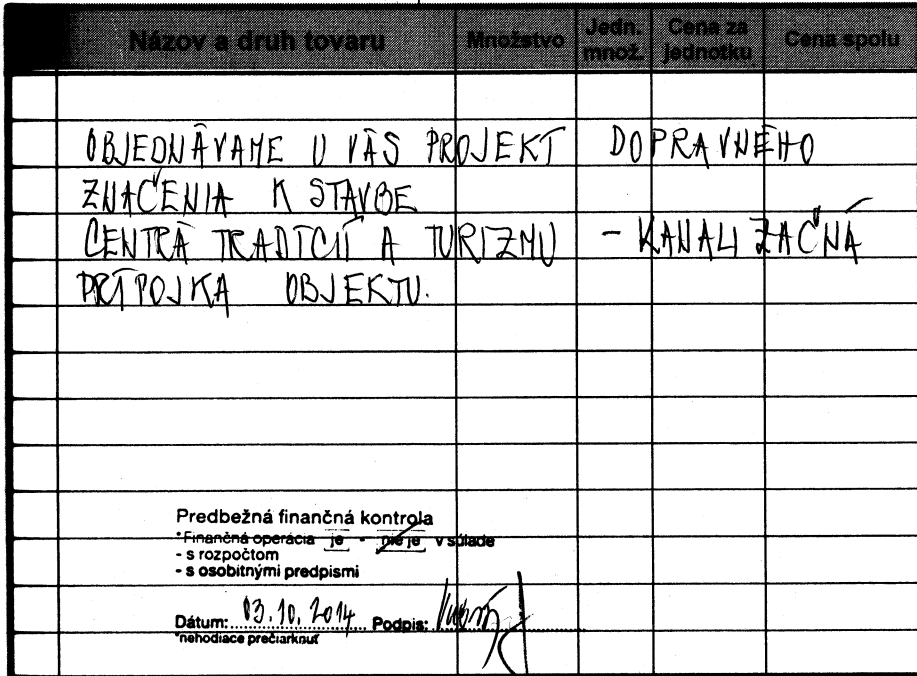 Názov a druh tovaru Množstvo Jedn. množ. Cena za jednotku Cena spolu
OBJEDNÁVAME U VÁS PROJEKT DOPRAVNÉHO
ZNAČENIA K STAVBE
CENTRÁ TRADÍCIÍ A TURIZMU - KANALIZAČNÁ
PRÍPOJKA OBJEKTU.
Predbežná finančná kontrola
*Finančná operácia je - nie je v súlade
- s rozpočtom
- s osobitnými predpismi
Dátum: 03.10.2014 Podpis:
*nehodiace prečiarknuť